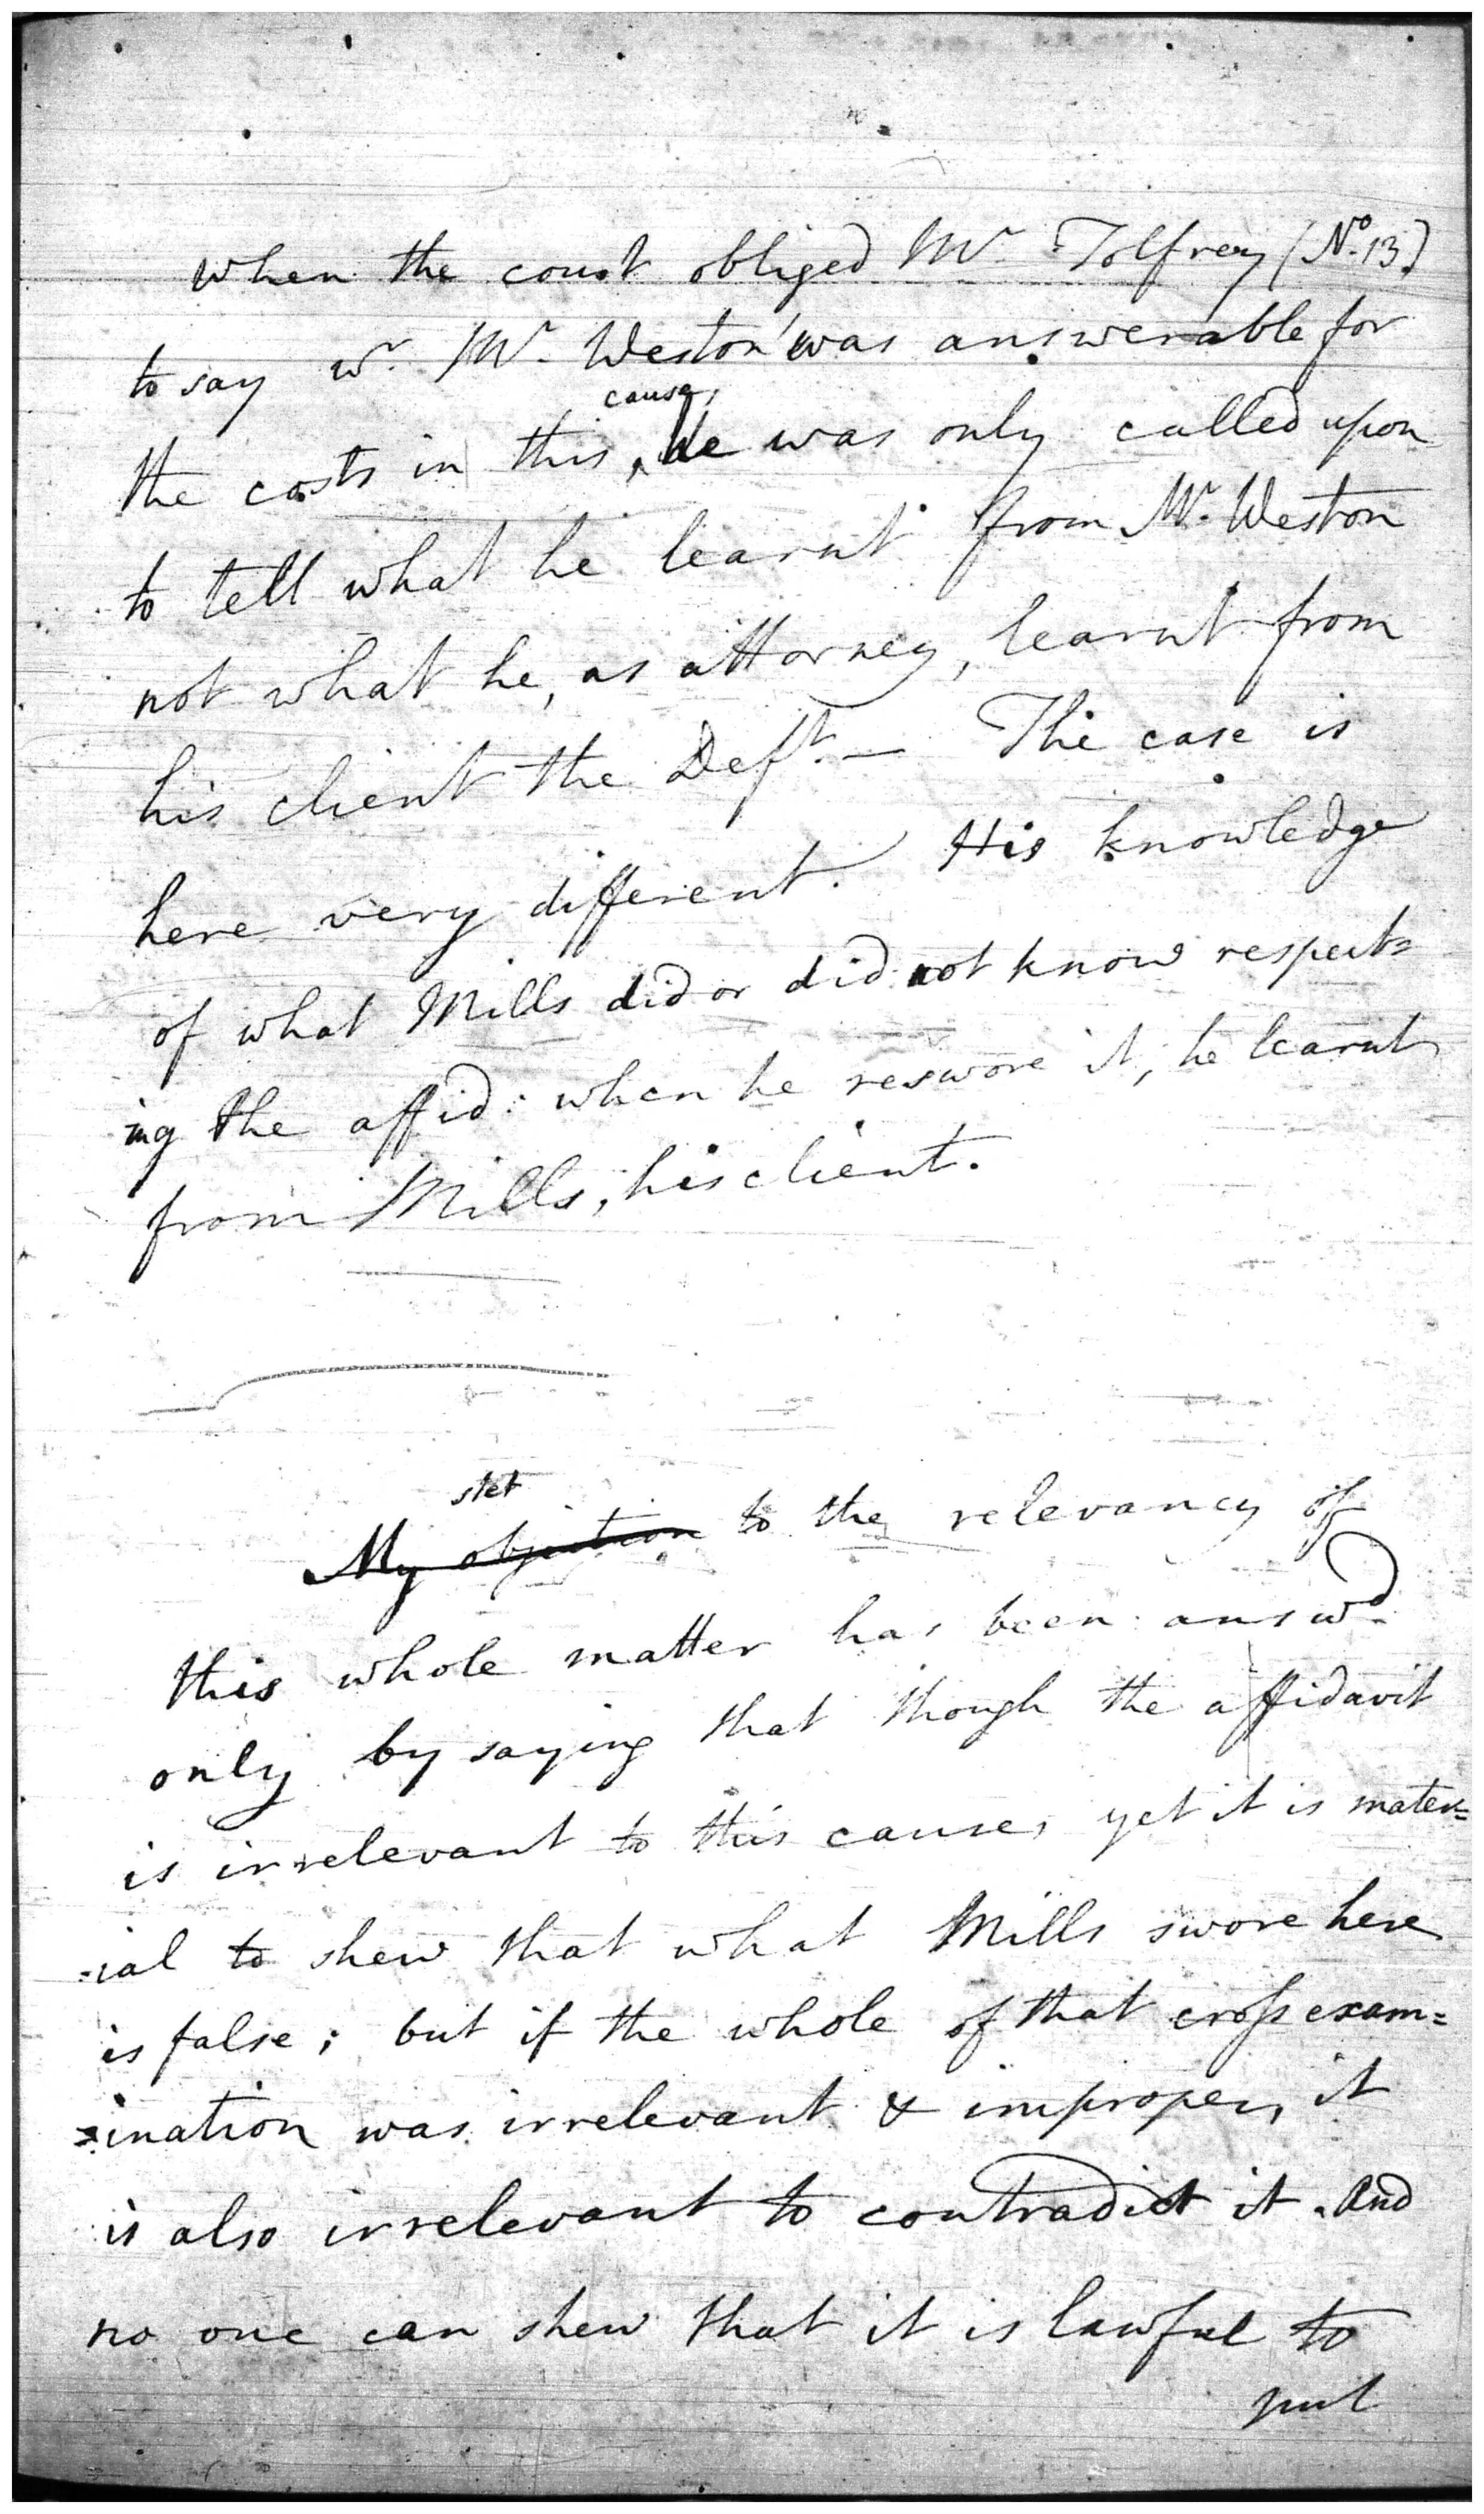 When the court obliged Mr. Tolfrey (No. 13)
to say wr. Mr. Weston was answerable for
cause,
the costs in this, he was only called upon
to tell what he learnt from Mr. Weston
not what he, as attorney, learnt from
his client the Deft. — The case is
here very different. His knowledge
of what Mills did or did not know respect=
ing the affid: when he reswore it, he learnt
from Mills, his client.
stet
My objection to the relevancy of
this whole matter has been answd.
only by saying that though the affidavit
is irrelevant to this cause, yet it is mater=
=ial to shew that what Mills swore here
is false; but if the whole of that cross exam=
=ination was irrelevant & improper, it
is also irrelevant to contradict it. And
no one can shew that it is lawful to
put